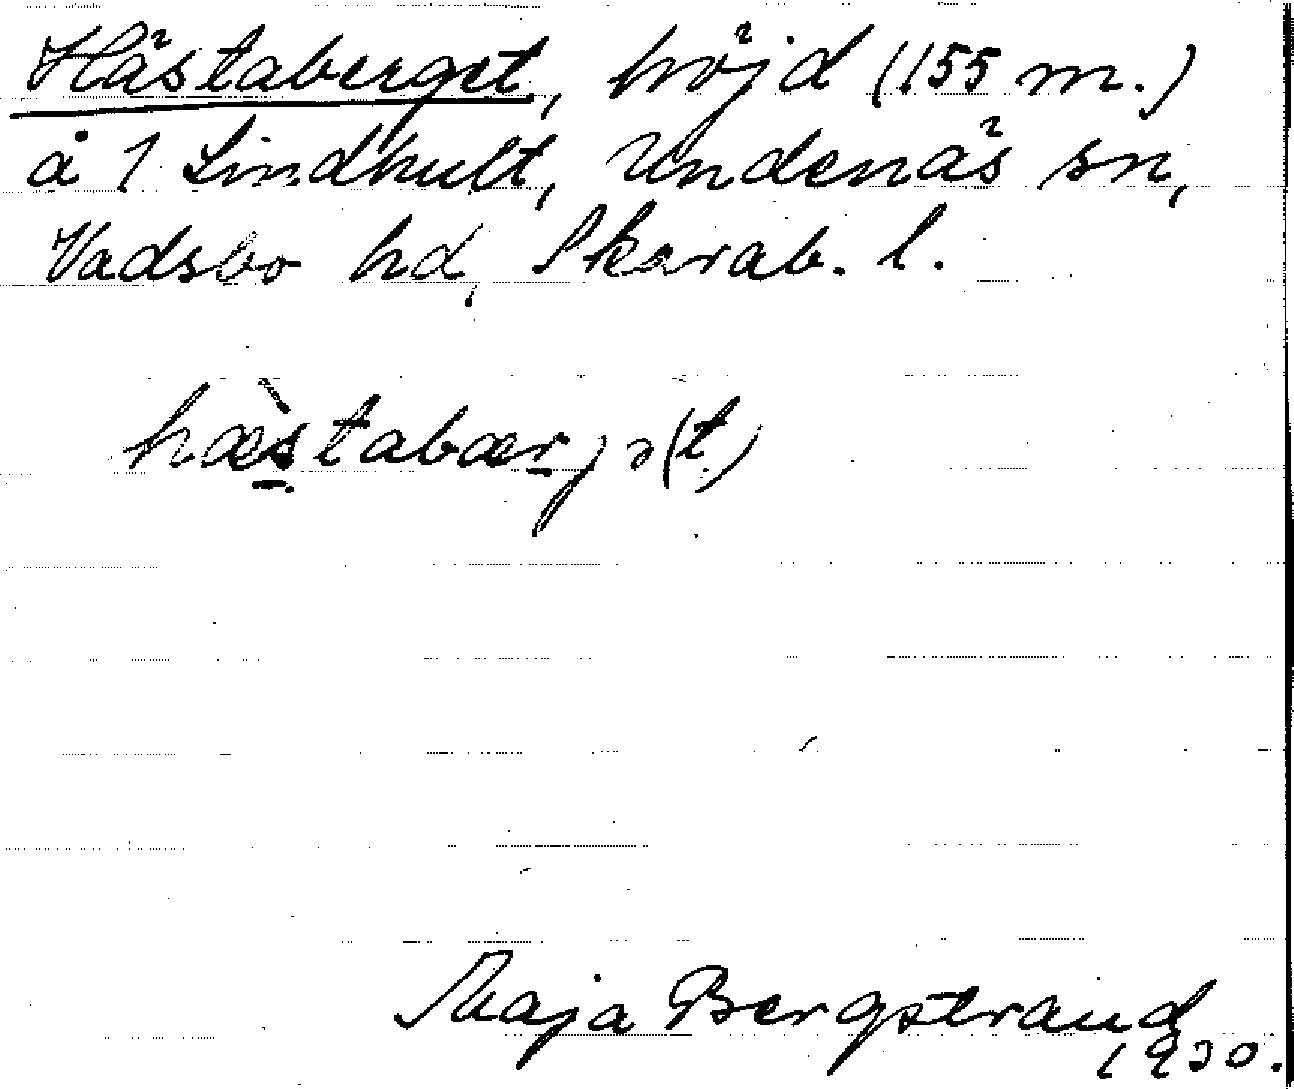 Hästaberget, höjd (155 m.)
å 1 Lindhult, Undenäs sn,
Vadsbo hd, Skarab. l.
hæ̀stabærjə(t)
Maja Bergstrand
1930.